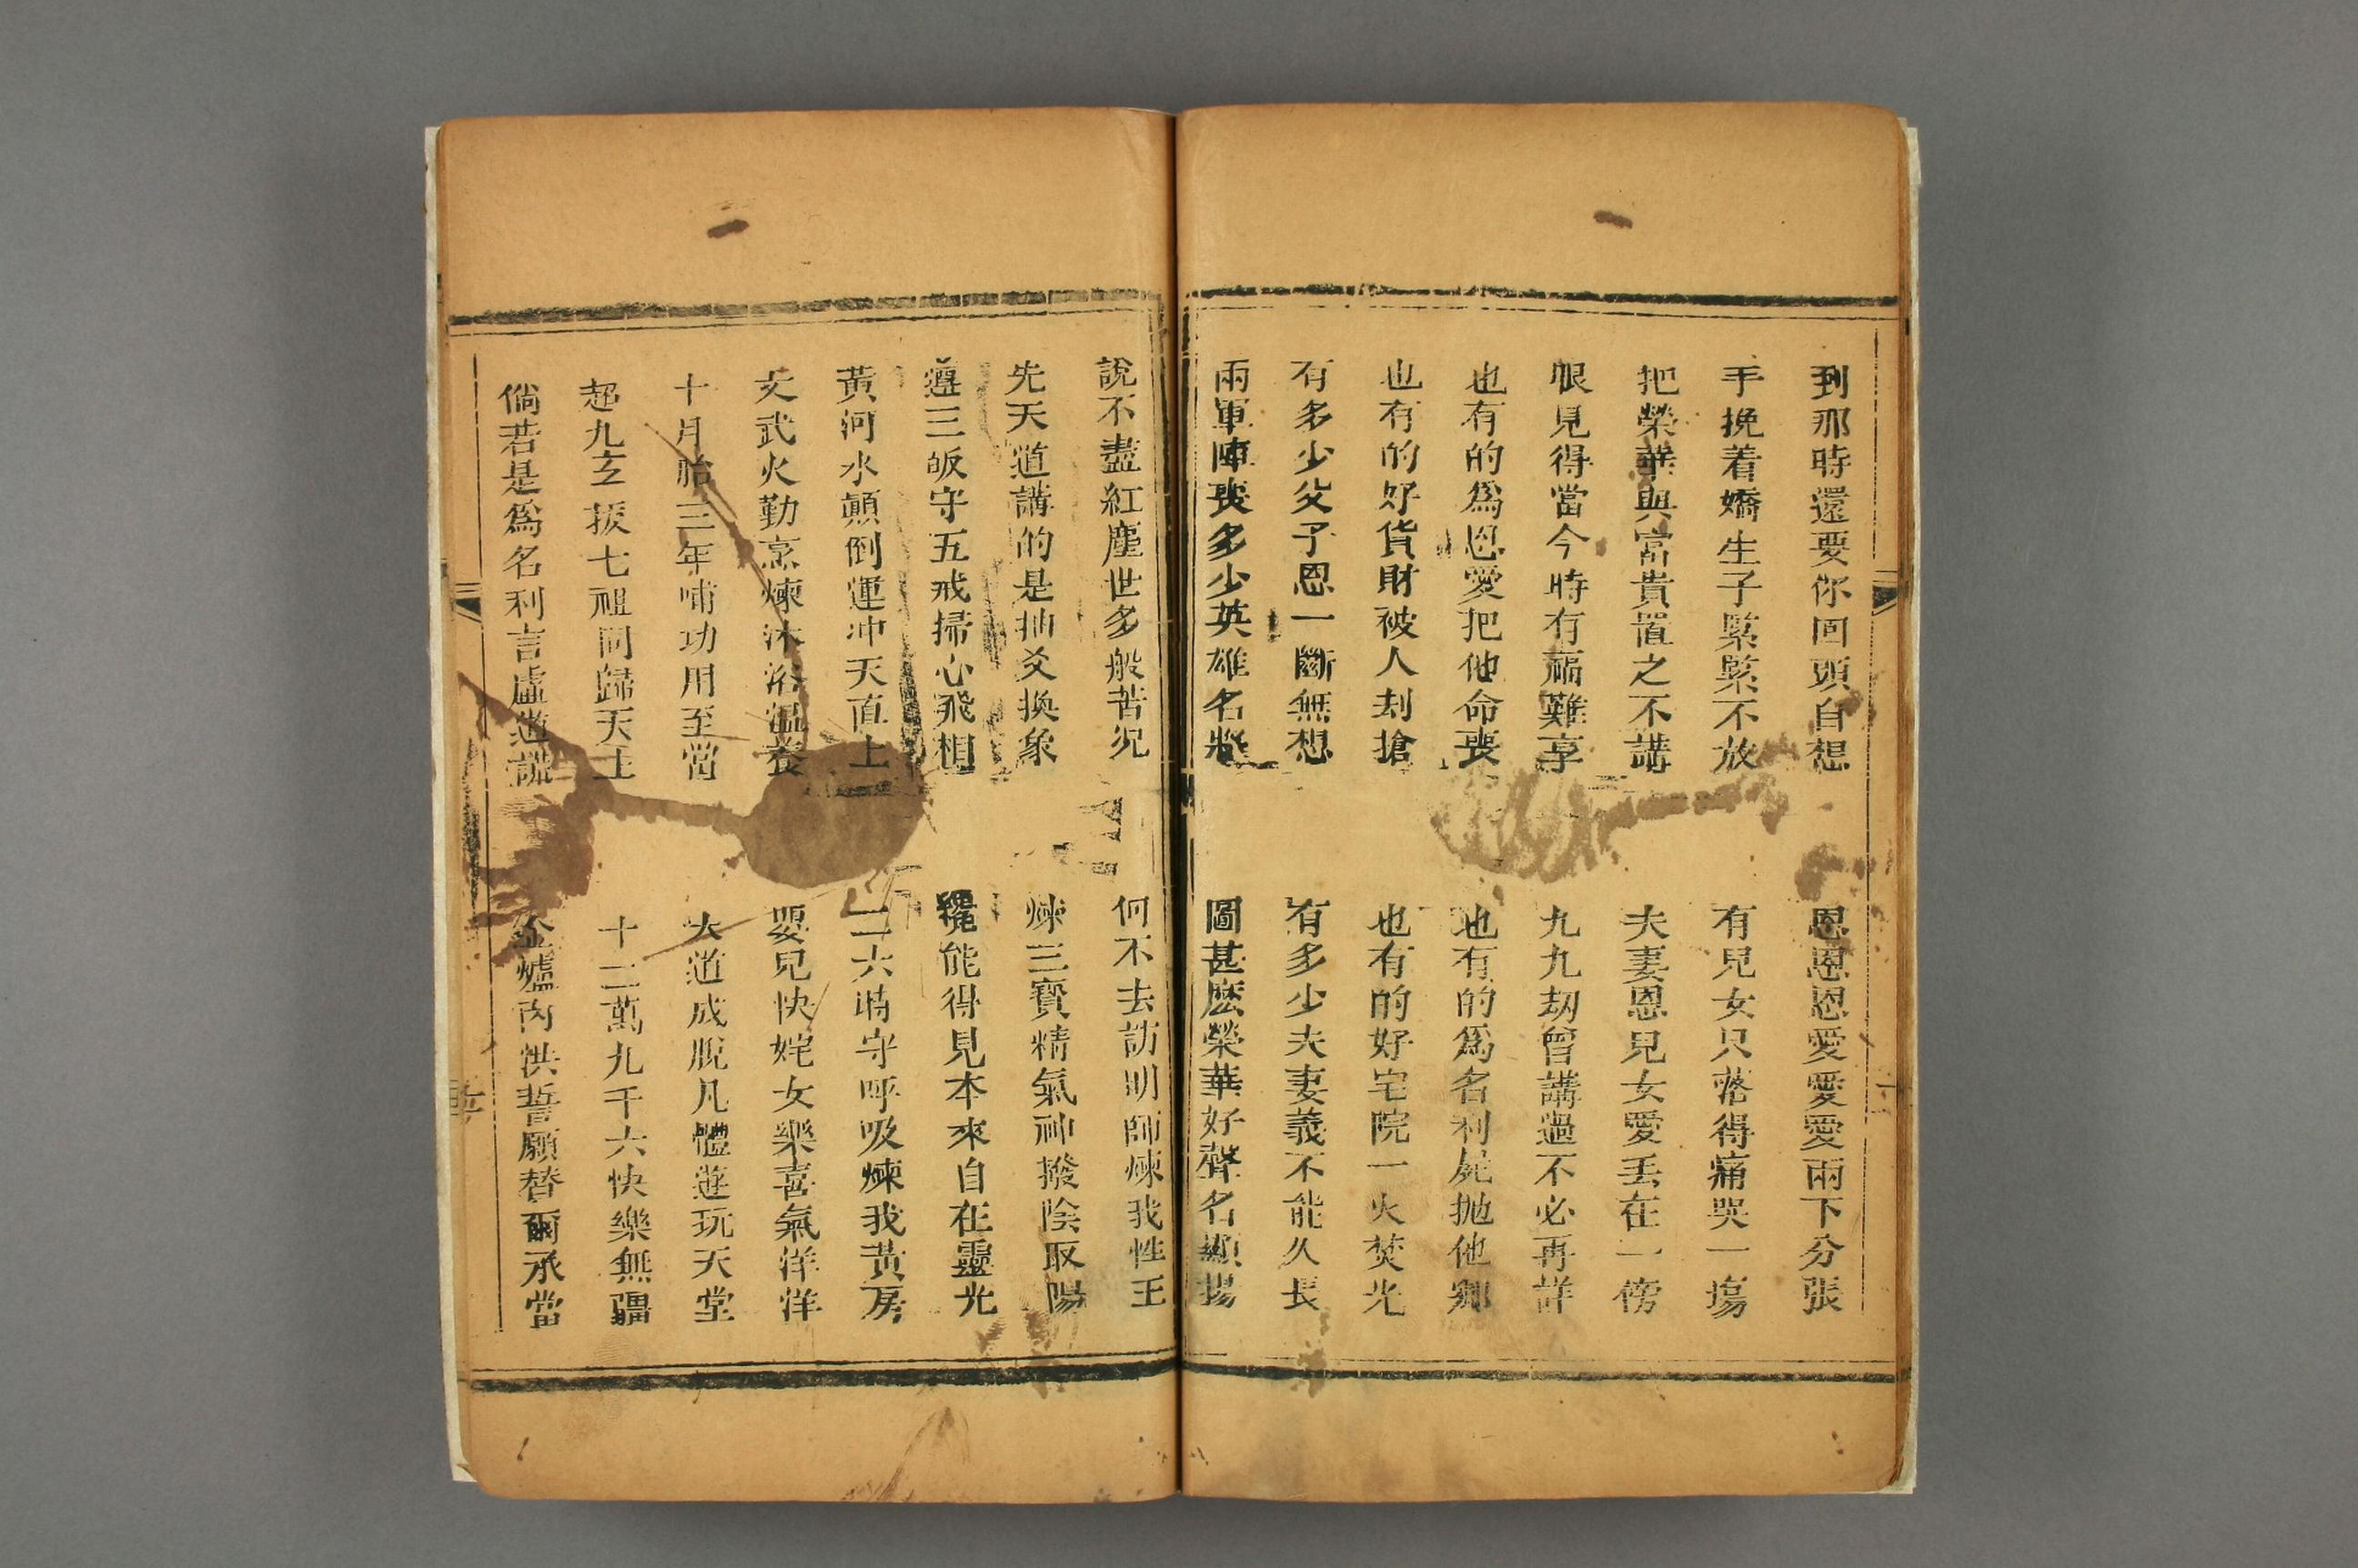 到那時還要你回頭自想 恩恩恩愛愛愛兩下分張
手挽着嬌生子緊緊不放 有兒女只落得痛哭一塲
把榮華與富貴置之不講 夫妻恩兒女愛丢在一傍
眼見得當今時有福難享 九九刼曾講過不必再詳
也有的爲恩愛把他命喪 也有的爲名利屍抛他鄉
也有的好貨財被人刦搶 也有的好宅院一火焚光
有多少父子恩一斷無想 有多少夫妻義不能久長
兩軍陣喪多少英雄名將 圖甚麽榮華好聲名顯揚
說不盡紅塵世多般苦况 何不去訪明師煉我性王
先天道講的是抽爻換象 煉三寶精氣神撥陰取陽
遵三皈守五戒掃心飛相 纔能得見本來自在靈光
黃河水顛倒運冲天直上 二六時守呼吸煉我黃房
文武火勤烹煉沐浴溫養 嬰兒快姹女樂喜氣洋洋
十月胎三年哺功用至當 大道成脫凡體遊玩天堂
超九玄拔七祖同歸天上 十二萬九千六快樂無疆
倘若是爲名利言虛道謊 金爐內洪誓願替爾承當